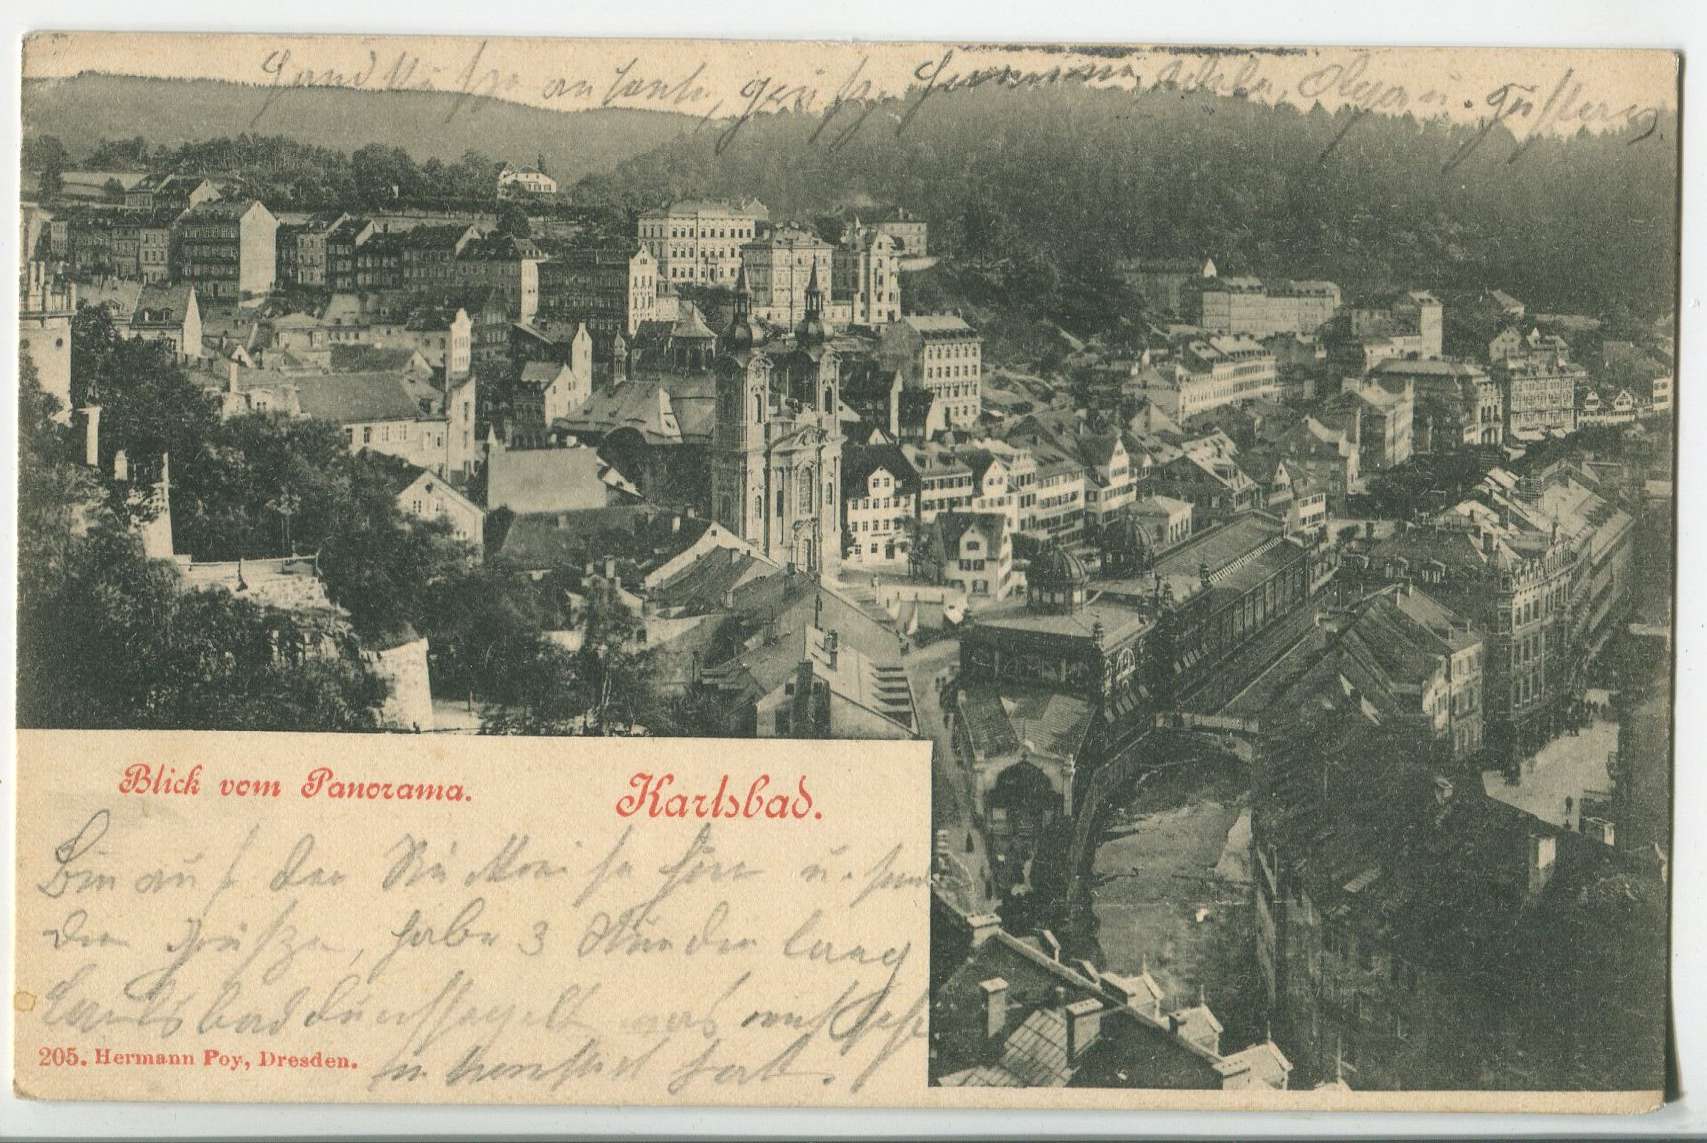 Handküsse an Tante, grüsse Hermine, Adele, Olga u. Gustav
Blick vom Panorama. Karlsbad.
Bin auf der Rückreise hier u. sen
den Grüsze, habe 3 Stunden lang
Carlsbad durchsegelt was mich sehr
interessirt hat.
205. Hermann Poy, Dresden.